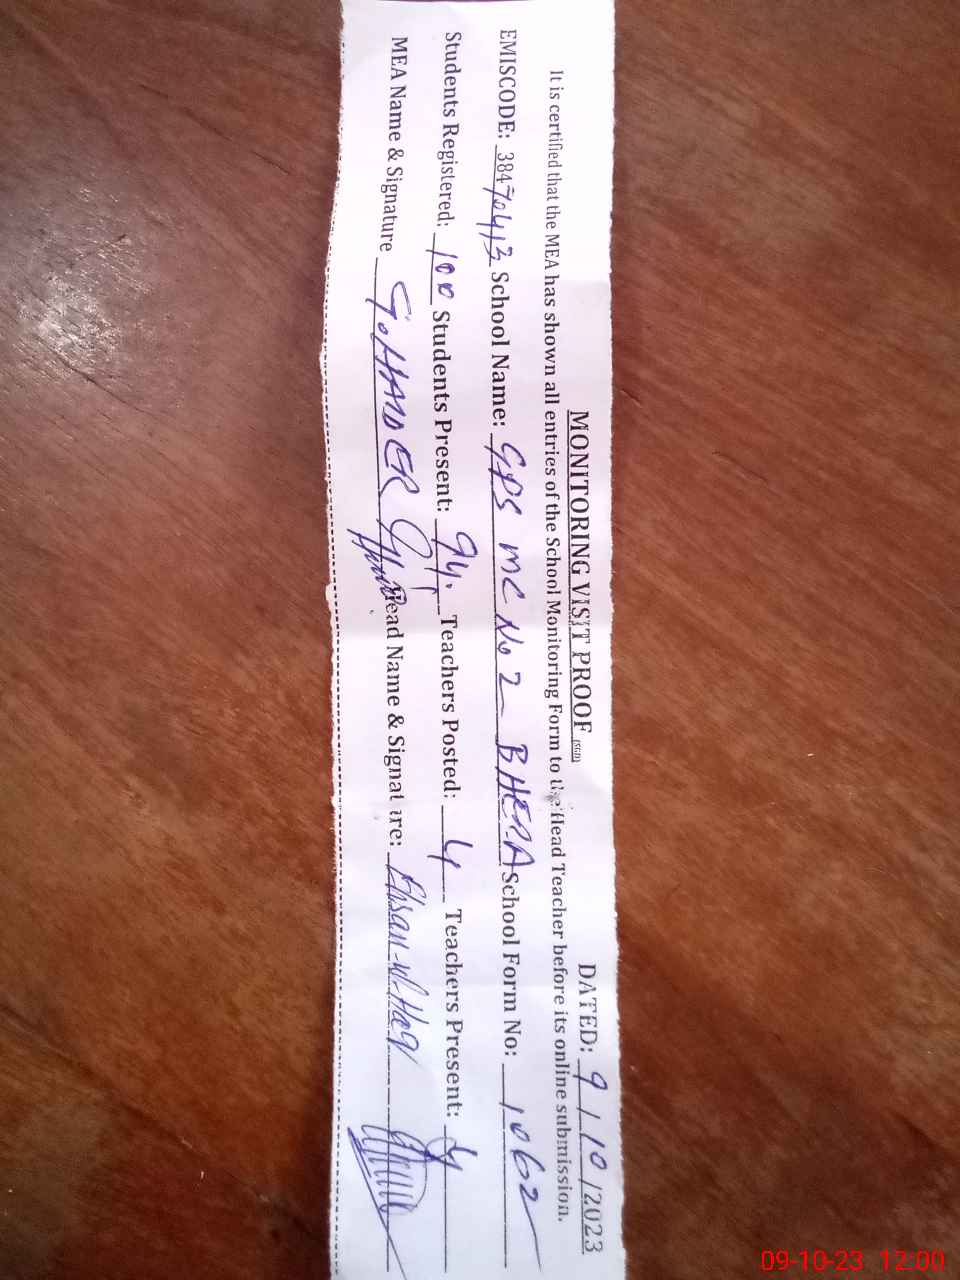 MONITORING VISIT PROOF (SGD) DATED: 9/10/2023
It is certified that the MEA has shown all entries of the School Monitoring Form to the Head Teacher before its online submission.
EMISCODE: 38470413 School Name: GPS MC No 2 BHERA School Form No: 1062
Students Registered: 100 Students Present: 94. Teachers Posted: 4 Teachers Present: 4
MEA Name & Signature G.HAIDER Head Name & Signature: Ehsan-ul-Haq
09-10-23 12:00